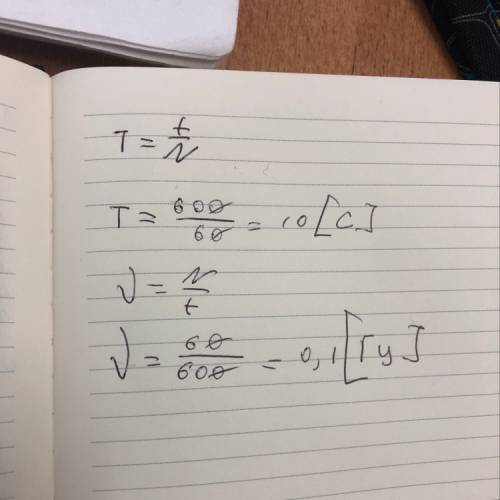 T = t/N
T = 600/60 = 10 [c]
ν = N/t
ν = 60/600 = 0,1 [Гц]